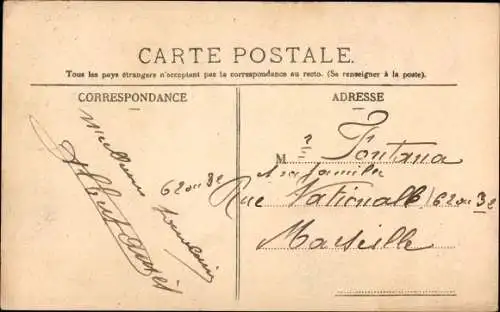 CARTE POSTALE.
Tous les pays étrangers n'acceptent pas la correspondance au recto. (Se renseigner à la poste).
CORRESPONDANCE
ADRESSE
Meilleurs
Souvenirs
Albert
62 ou 32
M. ? Fontana
& sa famille
Rue Nationale 62 ou 32
Marseille